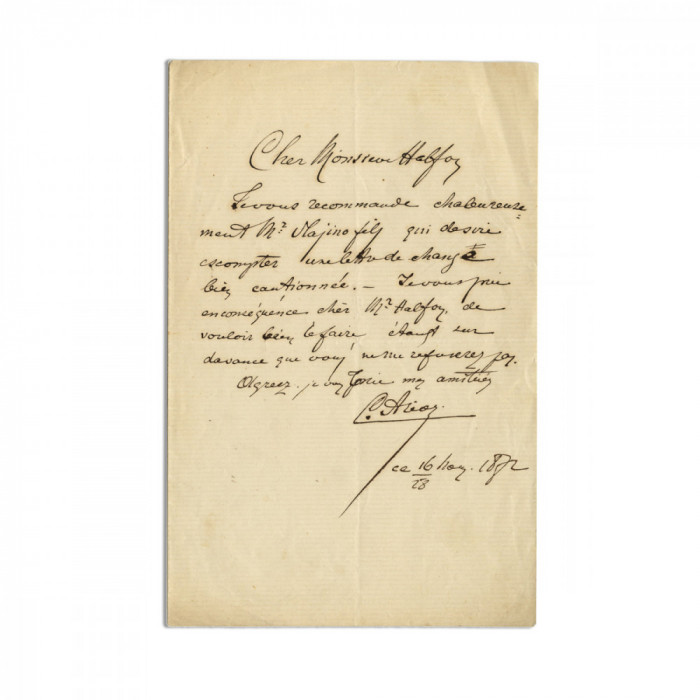 Cher Monsieur Halfon
Je vous recommande chaleureuse=
ment Mr. fils qui desire
escompter une lettre de change
bien cautionnée. – Je vous prie
en conséquence cher Mr. Halfon, de
vouloir bien le faire étant sur
davance que vous ne me refuserez pas.
Agreez je vous prie mes amitiés
C.
ce 16/28 1872